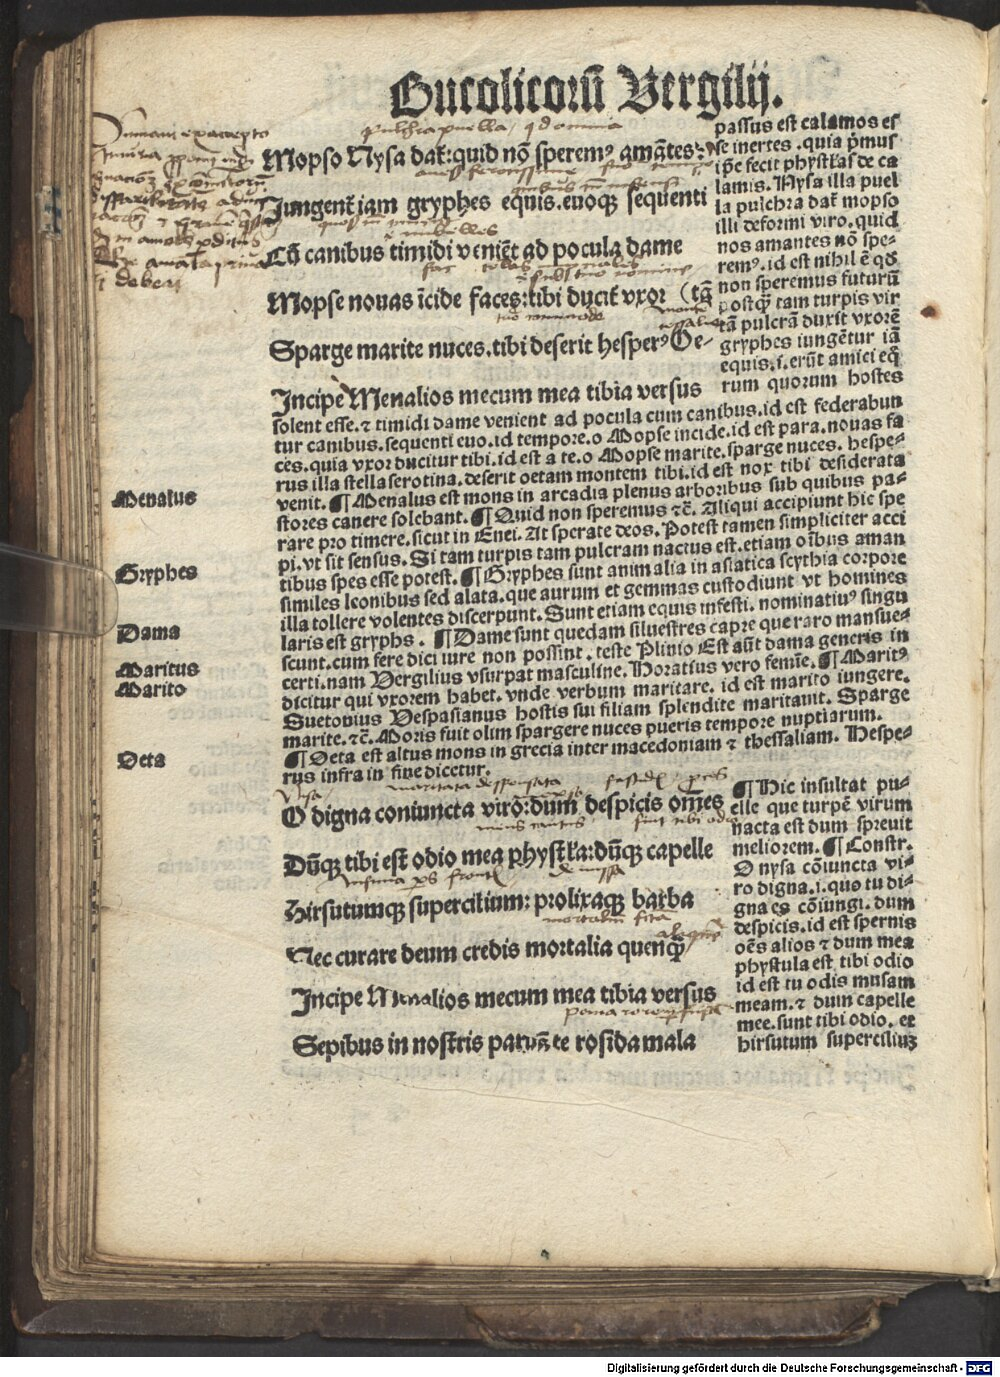 Bucolicorū Vergilij.
pulchra puella
Mopso Nysa dat̄: quid nō sperem⁹ amātes:
Jungent̄ iam gryphes equis. euoq̄ꝫ sequenti
Cū canibus timidi veniēt ad pocula dame
Mopse nouas īcide faces: tibi ducit̄ vxor
Sparge marite nuces. tibi deserit hesper⁹ Oe- (tā
Incipe Menalios mecum mea tibia versus
passus est calamos es
se inertes. quia pͥmus
ip̄e fecit phystl̄as de ca
lamis. Nysa illa puel
la pulchra dat̄ mopso
illi deformi viro. quid
nos amantes nō spe-
rem⁹. id est nihil ē qd̄
non speremus futurū
postq̄ꝫ tam turpis vir
tā pulcrā duxit vxorē
gryphes iungētur iā
equis. i. erūt amici eq̄
rum quorum hostes
solent esse. ⁊ timidi dame venient ad pocula cum canibus. id est federabun
tur canibus. sequenti euo. id tempore. o Mopse incide. id est para. nouas fa
ces. quia vxor ducitur tibi. id est a te. o Mopse marite. sparge nuces. hespe-
rus illa stella serotina. deserit oetam montem tibi. id est nox tibi desiderata
venit. ¶ Menalus est mons in arcadia plenus arboribus sub quibus pa-
stores canere solebant. ¶ Quid non speremus ⁊c̄. Aliqui accipiunt hic spe
rare pro timere. sicut in Enei. At sperate deos. Potest tamen simpliciter acci
pi. vt sit sensus. Si tam turpis tam pulcram nactus est. etiam oībus aman
tibus spes esse potest. ¶ Gryphes sunt animalia in asiatica scythia corpore
similes leonibus sed alata. que aurum et gemmas custodiunt vt homines
illa tollere volentes discerpunt. Sunt etiam equis infesti. nominatiu⁹ singu
laris est gryphs. ¶ Dame sunt quedam siluestres capre que raro mansue-
scunt. cum fere dici iure non possint. teste Plinio Est aūt dama generis in
certi. nam Vergilius vsurpat masculine. Horatius vero femīe. ¶ Marit⁹
dicitur qui vxorem habet. vnde verbum maritare. id est marito iungere.
Suetonius Vespasianus hostis sui filiam splendite maritauit. Sparge
marite. ⁊c̄. Moris fuit olim spargere nuces pueris tempore nuptiarum.
¶ Oeta est altus mons in grecia inter macedoniam ⁊ thessaliam. Hespe-
rus infra in fine dicetur.
Menalus
Gryphes
Dama
Maritus
Marito
Oeta
maritata desponsata
O digna coniuncta viro: dum despicis om̄es
Dūq̄ꝫ tibi est odio mea phystl̄a: dūq̄ꝫ capelle
Hirsutumq̄ꝫ supercilium: prolixaq̄ꝫ barba
Nec curare deum credis mortalia quenq̄ꝫ
Incipe Menalios mecum mea tibia versus
Sepibus in nostris paruā te rosida mala
¶ Hic insultat pu-
elle que turpē virum
nacta est dum spreuit
meliorem. ¶ Constr.
O nysa cōiuncta vi-
ro digna. i. quo tu di-
gna es cōiungi. dum
despicis. id est spernis
oēs alios ⁊ dum mea
phystula est tibi odio
id est tu odis musam
meam. ⁊ dum capelle
mee. sunt tibi odio. et
hirsutum superciliuꝫ
Digitalisierung gefördert durch die Deutsche Forschungsgemeinschaft - DFG